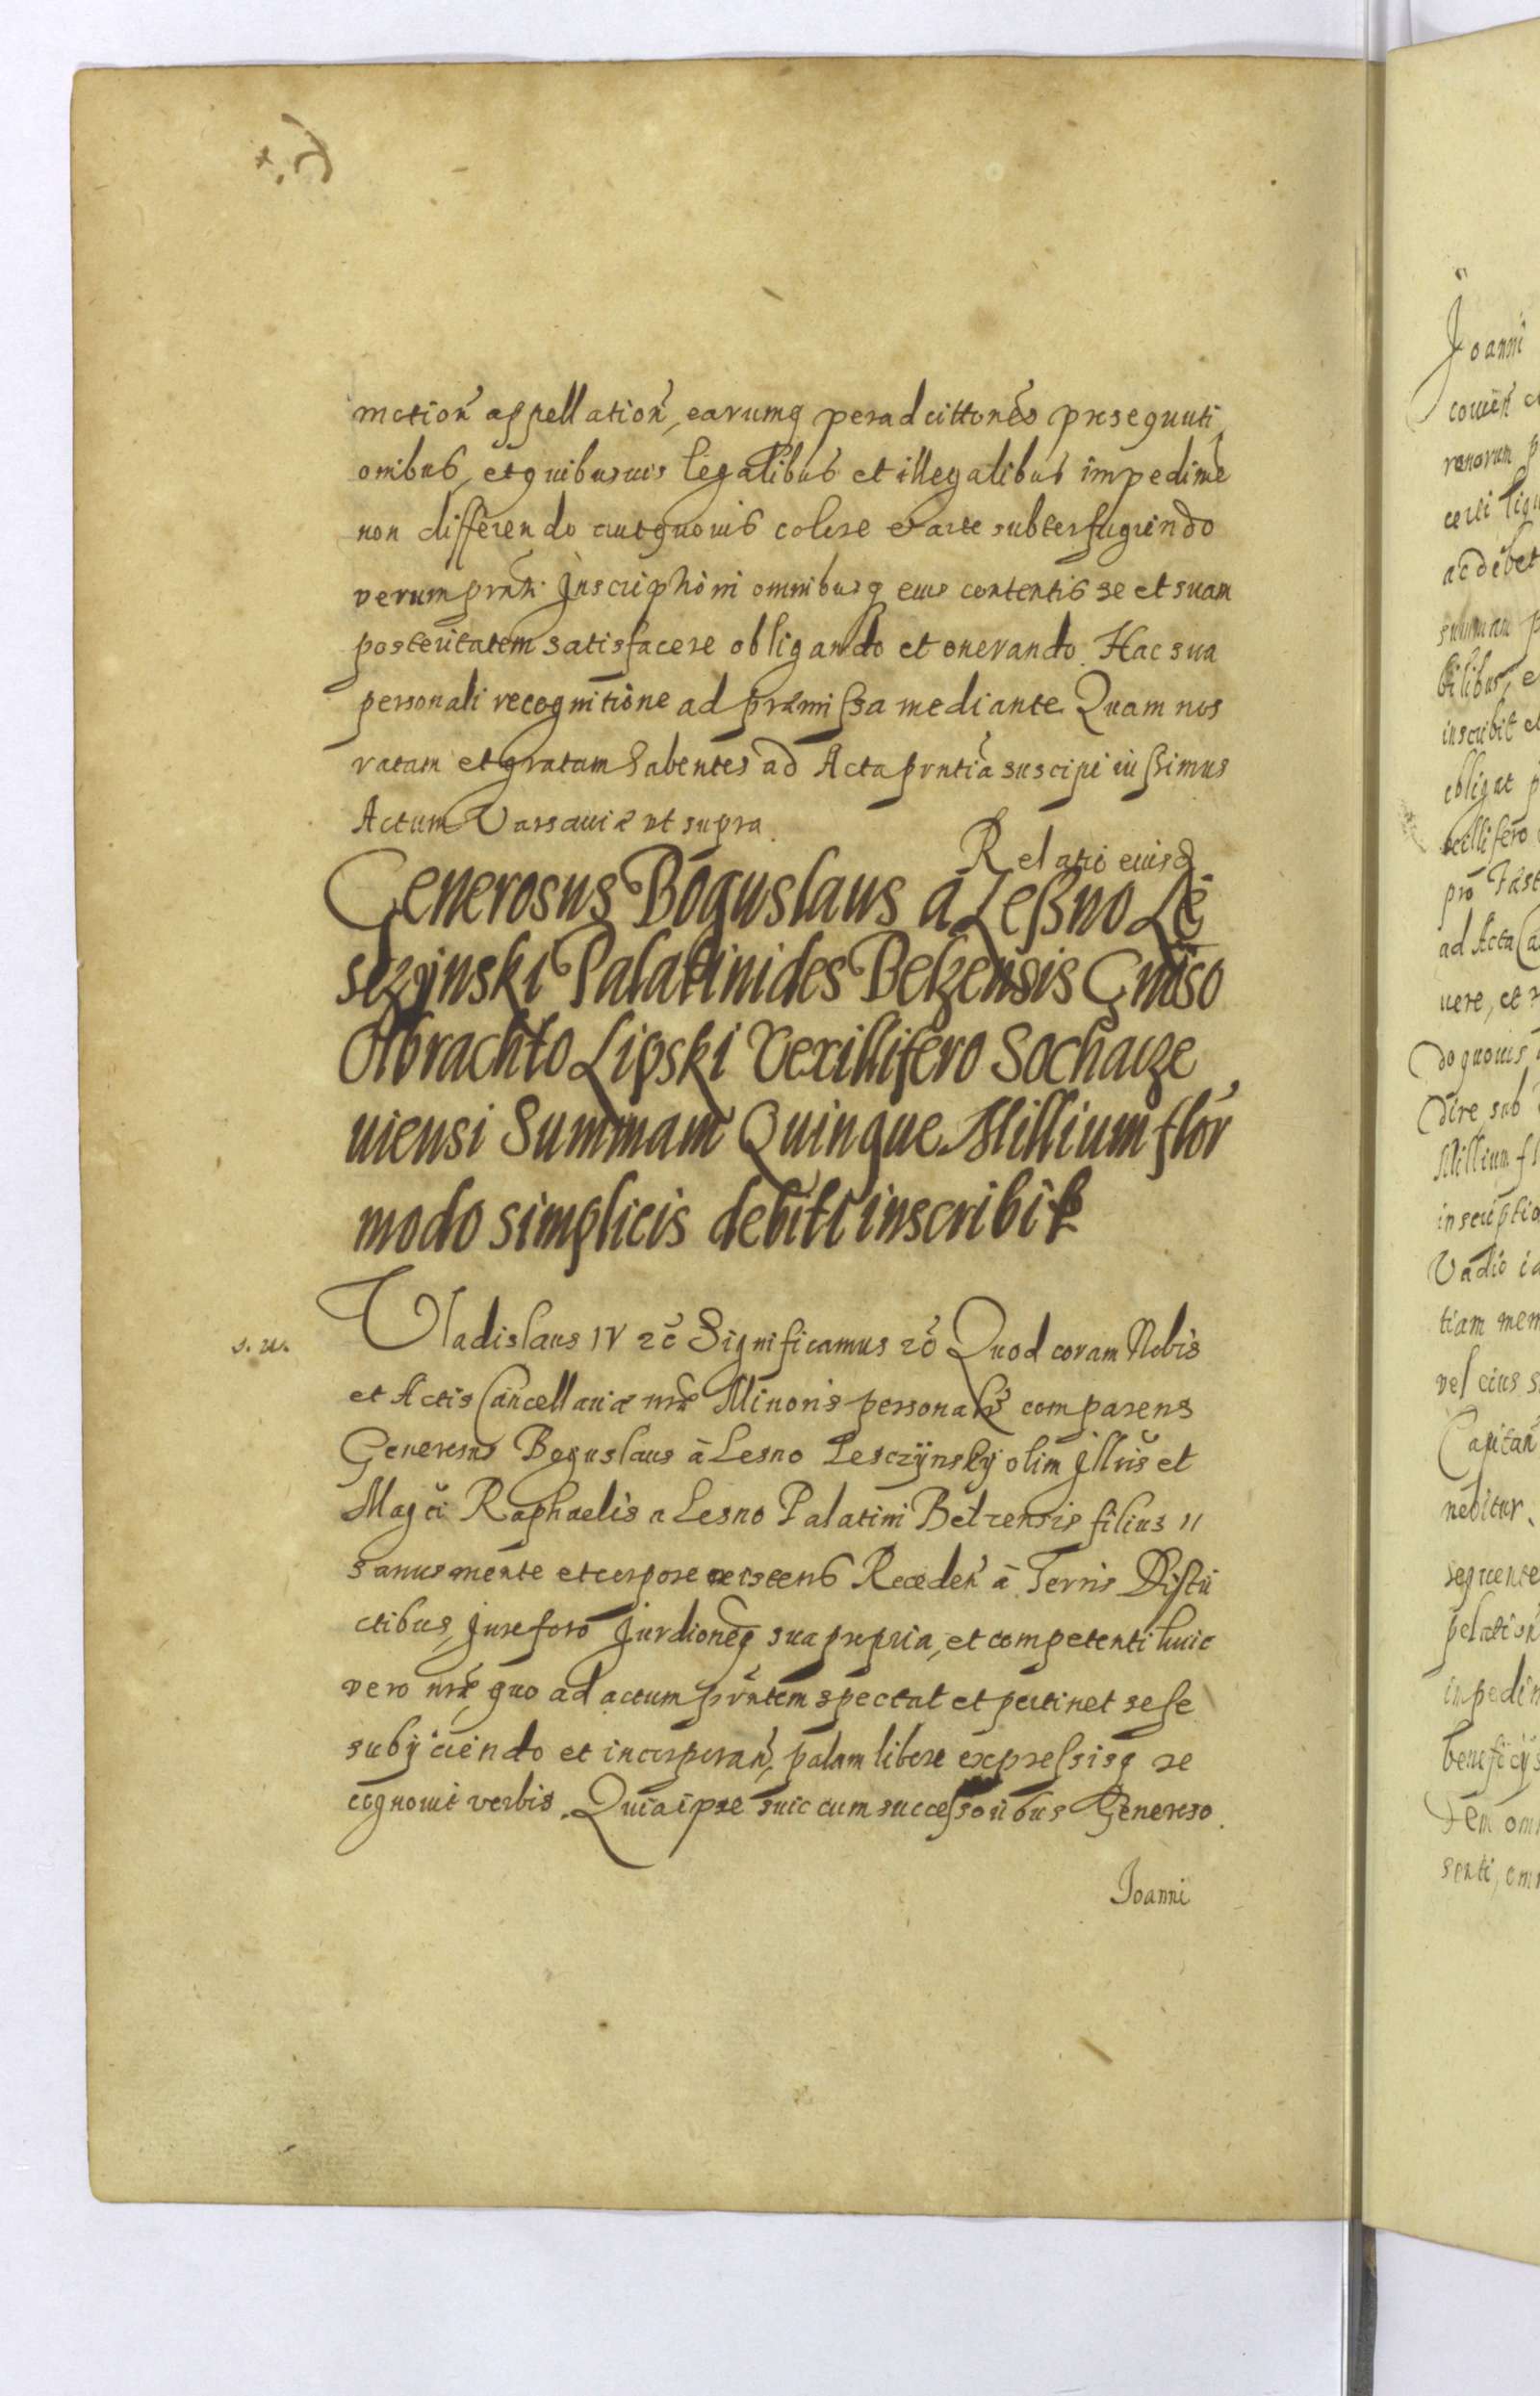 motioñ appellationẽ, earumq per adcittonẽs prosequuti
onibus, et quibusuis legalibus et illegalibus impedimẽ
non differendo aut quouis colore et arte subterfugiendo
verum prñti Inscriptioni omnibusq eius contentis se et suam
posteritatem satisfacere obligando et onerando. Hac sua
personali recognitione ad præmissa mediante Quam nos
ratam et gratam habentes ad Acta prntia suscipi iussimus
Actum Varsauiæ ut supra.
Relatio eiusd
Generosus Boguslaus à Leßno Le
sczynski Palatinides Belzensis Gniso
Olbrachto Lipski Vexillifero Sochacze
uiensi Summam Quinque Millium flor
modo simplicis debiti inscribit
s. u.
Vladislaus IV ꝛc Significamus ꝛc Quod coram Nobis
et Actis Cancellariæ nræ Minoris personalr comparens
Generosus Boguslaus à Lesno Lesczÿnskÿ olim Illris et
Magci Raphaelis a Lesno Palatini Belzensis filius
sanus mente et corpore existens Recedeñ à Terris Distri
ctibus, Jure foro Jurdioneq sua propria, et competenti huic
vero nræ quo ad actum prñtem spectat et pertinet sese
subijciendo et incorporañ, palam libere expressisq re
cognouit verbis. Quia ipse suic cum successoribus Generoso.
Joanni
Joanni
ad Acta Ca
uere, et
do quouis
dire, sub
Millium fl
inscriptio
Vadio
tiam mem
vel eius s
Capitañ
sequente
impedim
beneficijs